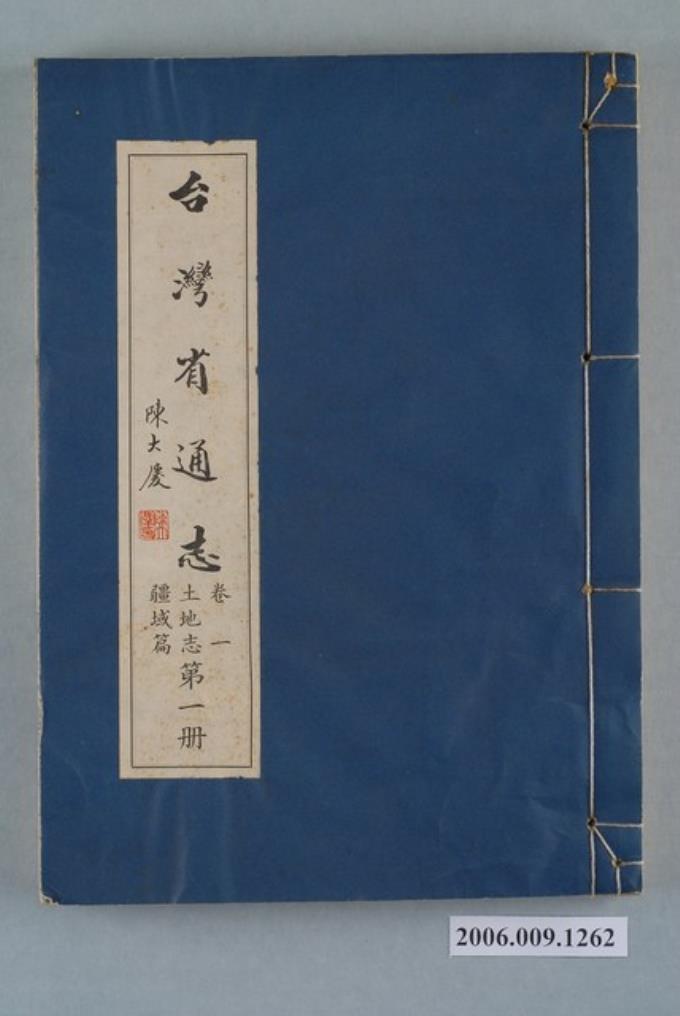 台灣省通志
陳大慶
卷一
土地志
疆域篇
第一册
2006.009.1262